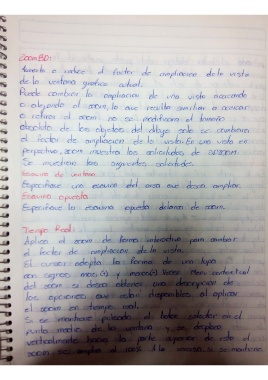 Zoom 3D:
Aumenta o reduce el factor de ampliacion de la vista
de la ventana grafica actual.
Puede cambiar la ampliacion de una vista acercando
o alejando el zoom, lo que resulta
o retirar el zoom no se modificara el tamaño
absoluto de los objetos del dibujo solo se cambiara
el factor de ampliacion de la vista. En una vista en
perspectiva zoom muestra las solicitudes de 3DZOOM.
Se muestran las siguientes solicitudes.
Esquina de ventana
Especifique una esquina del area que desea ampliar.
Esquina opuesta
Especifique la esquina opuesta de zoom.
Tiempo Real:
Aplica el zoom de forma interactiva para cambiar
el factor de ampliacion de la vista.
El cursor adopta la forma de una lupa
con signos mas(+) y menos(-). Menu contextual
del zoom si desea obtener una descripcion de
las opciones que estan disponibles al aplicar
el zoom en tiempo real.
Si se mantiene pulsado el boton selector en el
punto medio de la ventana y se desplaza
verticalmente hacia la parte superior de esta el
zoom, se amplia el